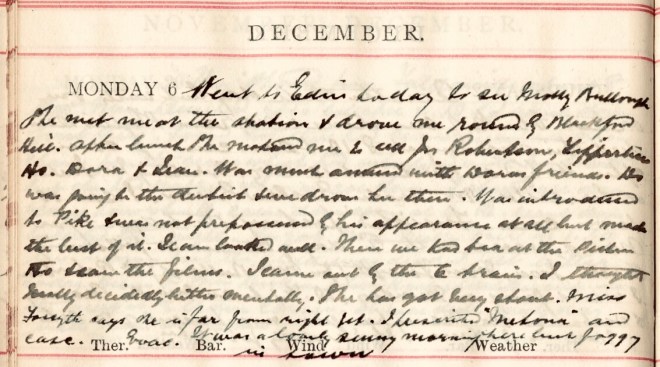 DECEMBER.
MONDAY 6 Went to Edin today to see Molly Bullough
She met me at the station & drove me round by Blackford
Hill. After lunch she me to call Jas Robertson,
Ho. Dora & Jean. Was much amused with Doras friends. Do
was going to the dentist & we drove her there. Was introduced
to Pike & was not prepossessed by his appearance at all but made
the best of it. Jean looked well. Then we had tea at the Picture
Ho & saw the films. I came out by the 6 train. I thought
Molly decidedly better mentally. She has got very stout. Miss
Forsyth says she is far from right yet. I "Melona" and
case. Ther. Bar. It was a lovely sunny morning here but foggy
Wind in town Weather